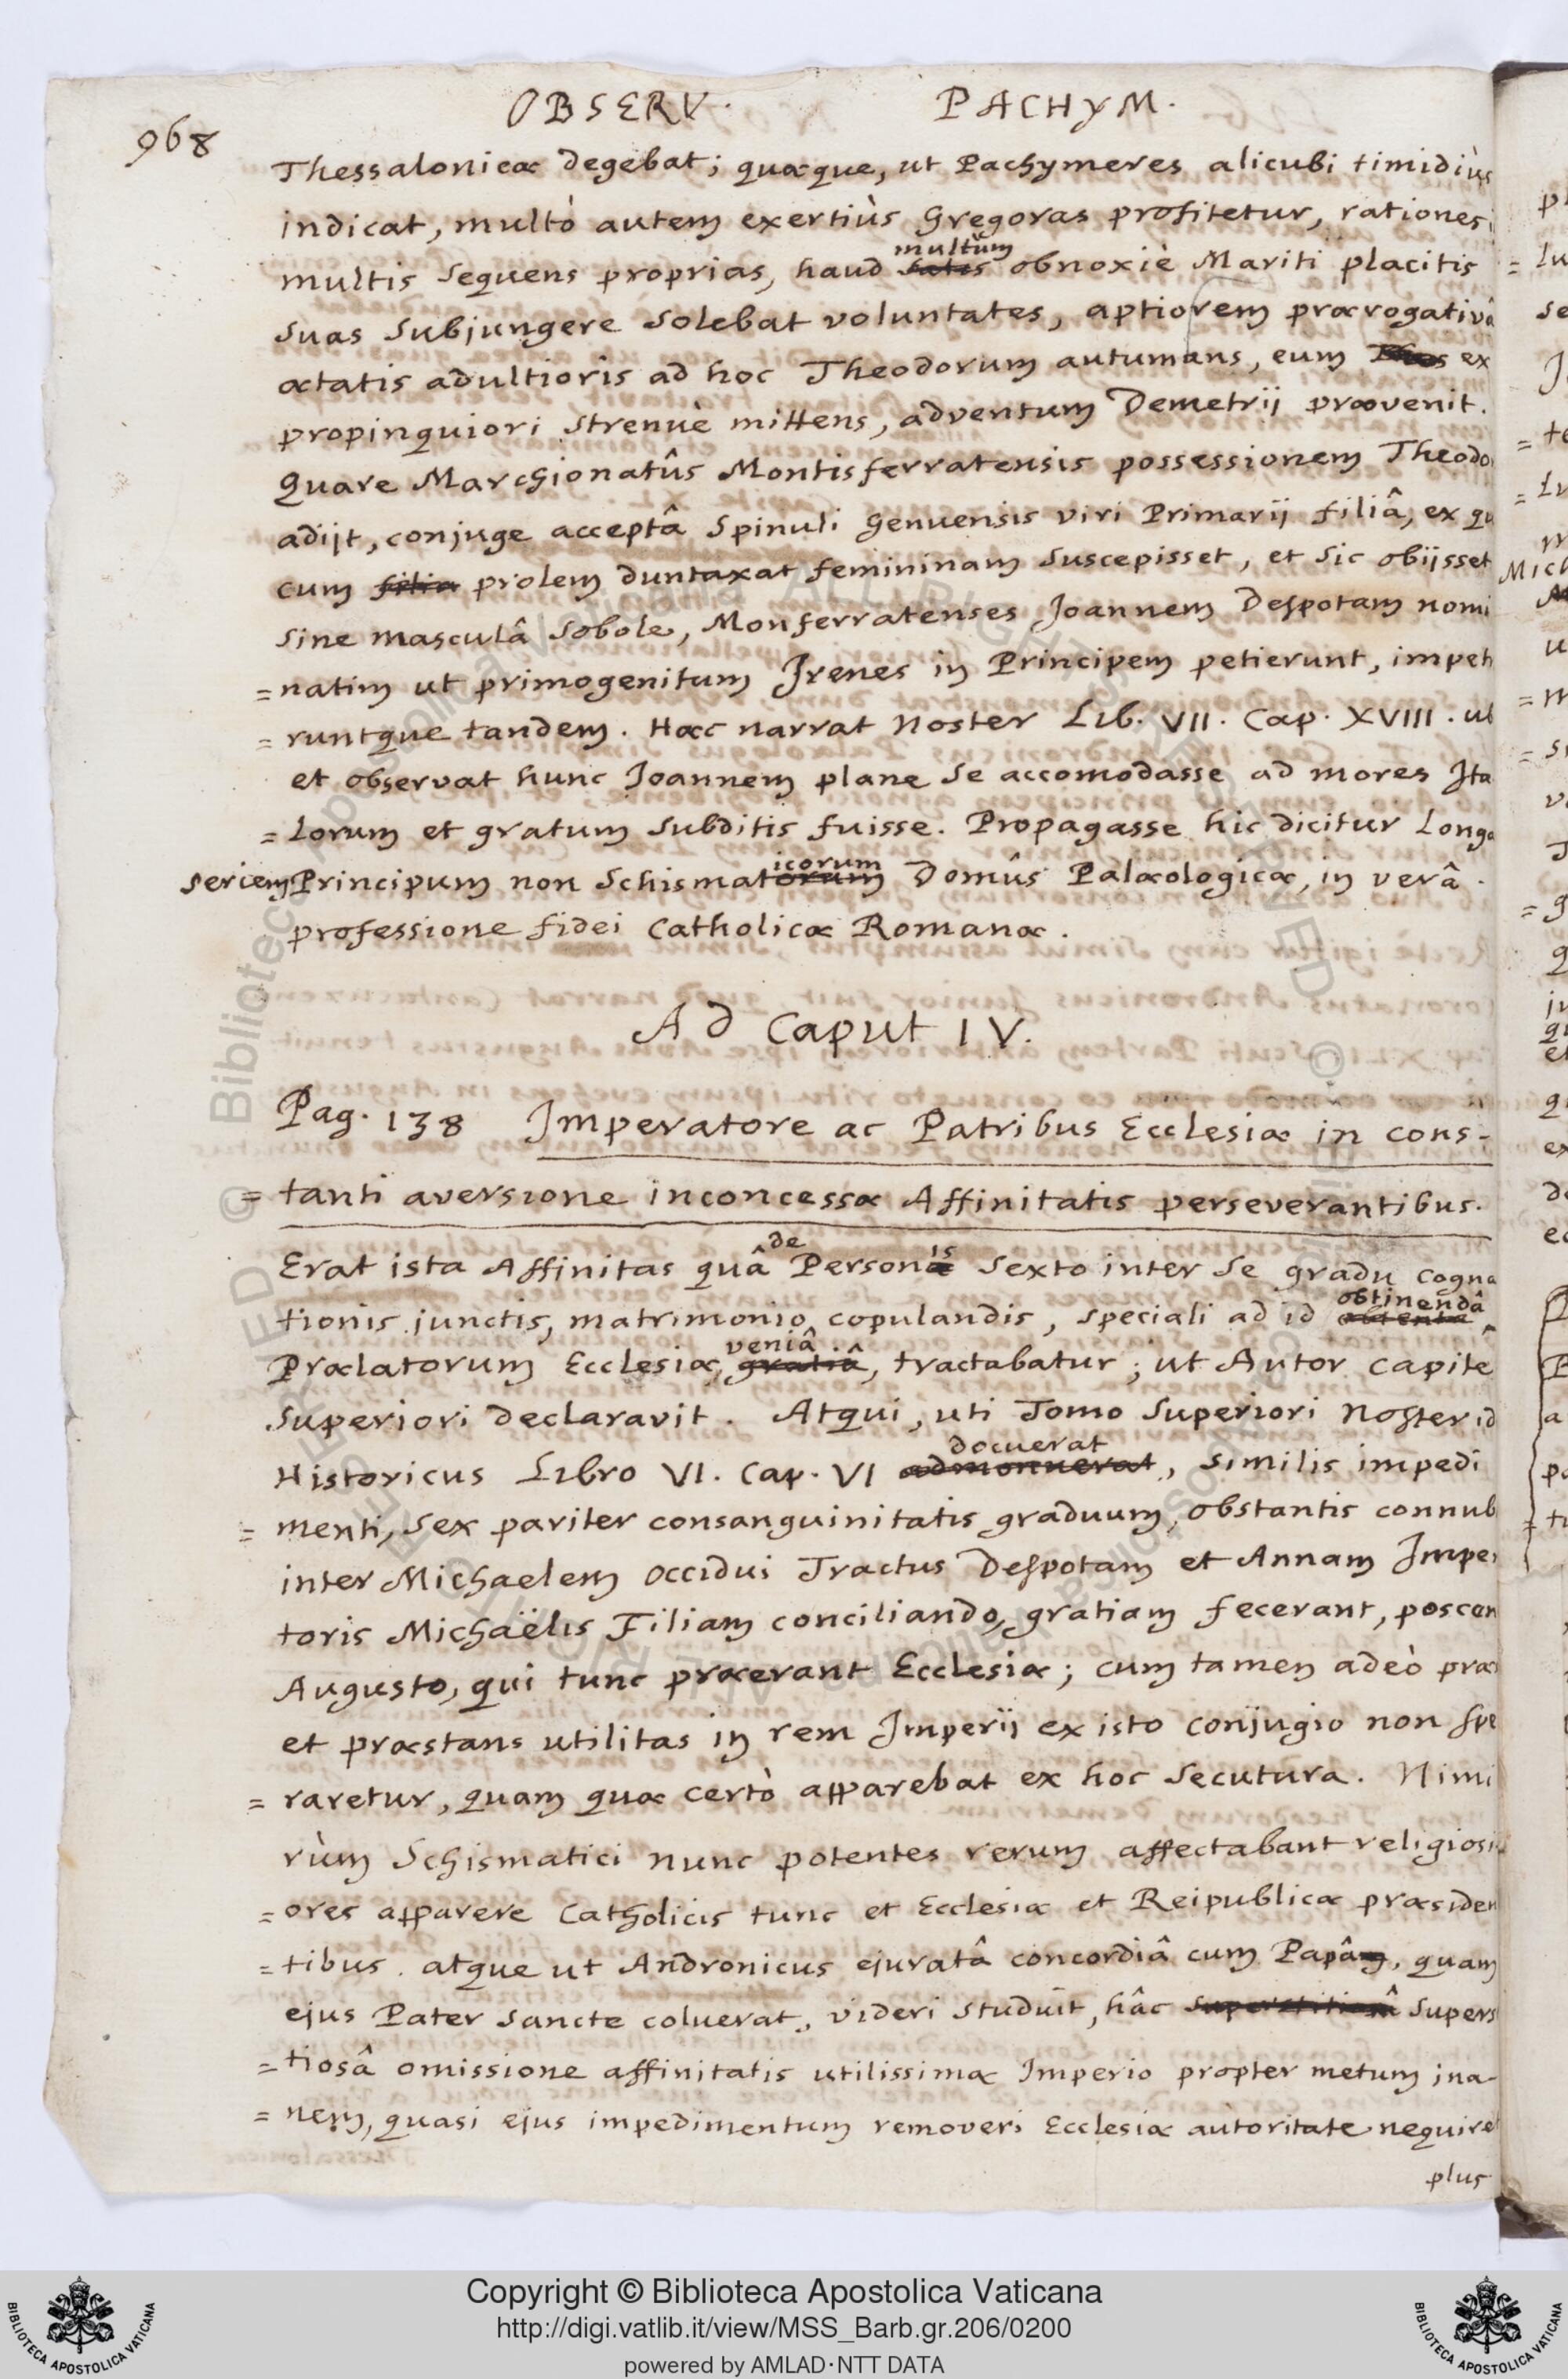 968
OBSERV. PACHYM.
Thessalonicæ degebat; quæque, ut Pachymeres alicubi timidiùs
indicat, multò autem exertiùs Gregoras profitetur, rationes
multis sequens proprias, haud satis multùm obnoxiè Mariti placitis
suas subjungere solebat voluntates, aptiorem prærogativâ
ætatis adultioris ad hoc Theodorum autumans, eum ex
propinquiori strenuè mittens, adventum Demetrij prævenit.
Quare Marchionatûs Montisferratensis possessionem Theodo
adijt, conjuge acceptâ Spinuli Genuensis viri Primarij filiâ, ex qu
cum filia prolem duntaxat femininam suscepisset, et sic obijsset
sine masculâ sobole, Monferratenses Joannem Despotam nomi
= natim ut primogenitum Jrenes in Principem petierunt, impet
= runtque tandem. Hæc narrat Noster Lib. VII. Cap. XVIII. ub
et observat hunc Joannem plane se accomodasse ad mores Ita
= lorum et gratum subditis fuisse. Propagasse hic dicitur longa
seriem Principum non Schismatorum icorum Domûs Palæologicæ, in verâ
professione fidei Catholicæ Romanæ.
Ad Caput IV.
Pag. 138 Imperatore ac Patribus Ecclesiæ in cons-
= tanti aversione inconcessæ Affinitatis perseverantibus.
Erat ista Affinitas quâ de Personæ is sexto inter se gradu cogna
tionis junctis, matrimonio copulandis, speciali ad id obtenta obtinendâ
Prælatorum Ecclesiæ, gratiâ veniâ, tractabatur; ut Autor capite
superiori declaravit. Atqui, uti Tomo superiori Noster id
Historicus Libro VI. Cap. VI admonuerat docuerat, similis impedi
= menti, sex pariter consanguinitatis graduum, obstantis connub
inter Michaelem Occidui Tractus Despotam et Annam Impe
toris Michaëlis Filiam conciliando, gratiam fecerant, poscen
Augusto, qui tunc præerant Ecclesiæ; cum tamen adeò præ
et præstans utilitas in rem Imperij ex isto conjugio non spe
= raretur, quam quæ certò apparebat ex hoc secutura. Nimi
rùm Schismatici nunc potentes rerum affectabant religiosi
= ores apparere Catholicis tunc et Ecclesiæ et Reipublicæ præsiden
= tibus. atque ut Andronicus ejuratâ concordiâ cum Papâm, quam
ejus Pater sancte coluerat, videri studuit, hâc superstitiosâ supers
= tiosâ omissione affinitatis utilissimæ Imperio propter metum ina-
= nem, quasi ejus impedimentum removeri Ecclesiæ autoritate nequiret
plus
Copyright © Biblioteca Apostolica Vaticana
http://digi.vatlib.it/view/MSS_Barb.gr.206/0200
powered by AMLAD·NTT DATA
BIBLIOTECA APOSTOLICA VATICANA
BIBLIOTECA APOSTOLICA VATICANA